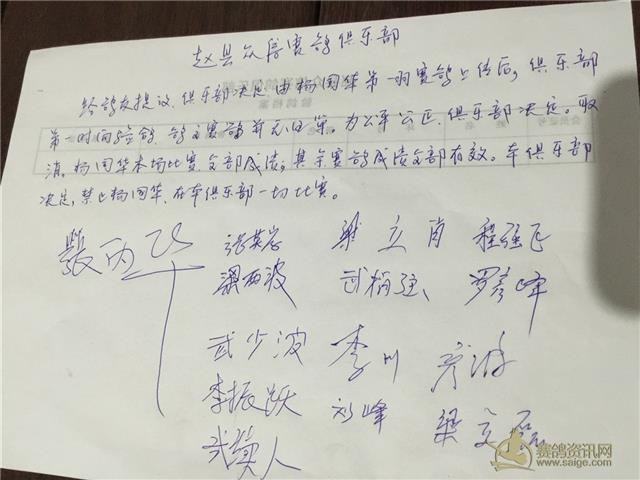 赵县众信赛鸽俱乐部
经鸽友提议,俱乐部决定,由杨国华第一羽赛鸽上传后,俱乐部
第一时间验鸽,鸽主赛鸽并无印章。为公平公正,俱乐部决定。取
消杨国华本场比赛全部成绩,其余赛鸽成绩全部有效。本俱乐部
决定,禁止杨国华,在本俱乐部一切比赛。
张英岩 梁立肖 程强飞
梁西波 武稍强 罗彦峰
武少波 李川 彦游
李振跃 刘峰 梁立磊
武英人
赛鸽资讯网
www.saige.com